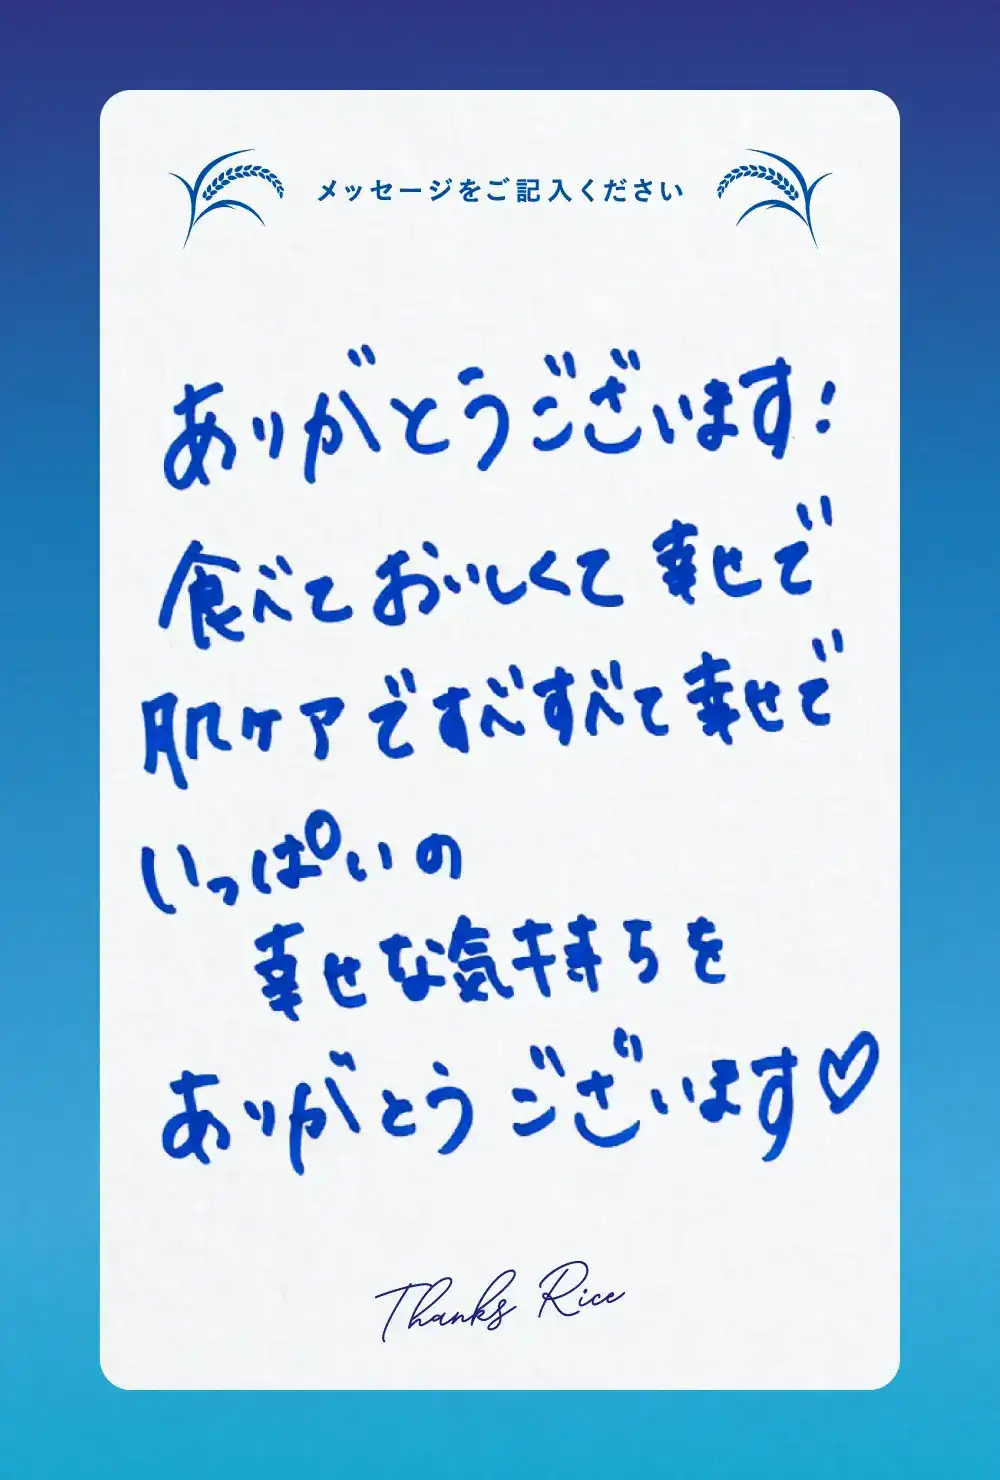 メッセージをご記入ください
ありがとうございます!
食べておいしくて幸せで
肌ケアですべすべて幸せで
いっぱいの
幸せな気持ちを
ありがとうございます♡
Thanks Rice